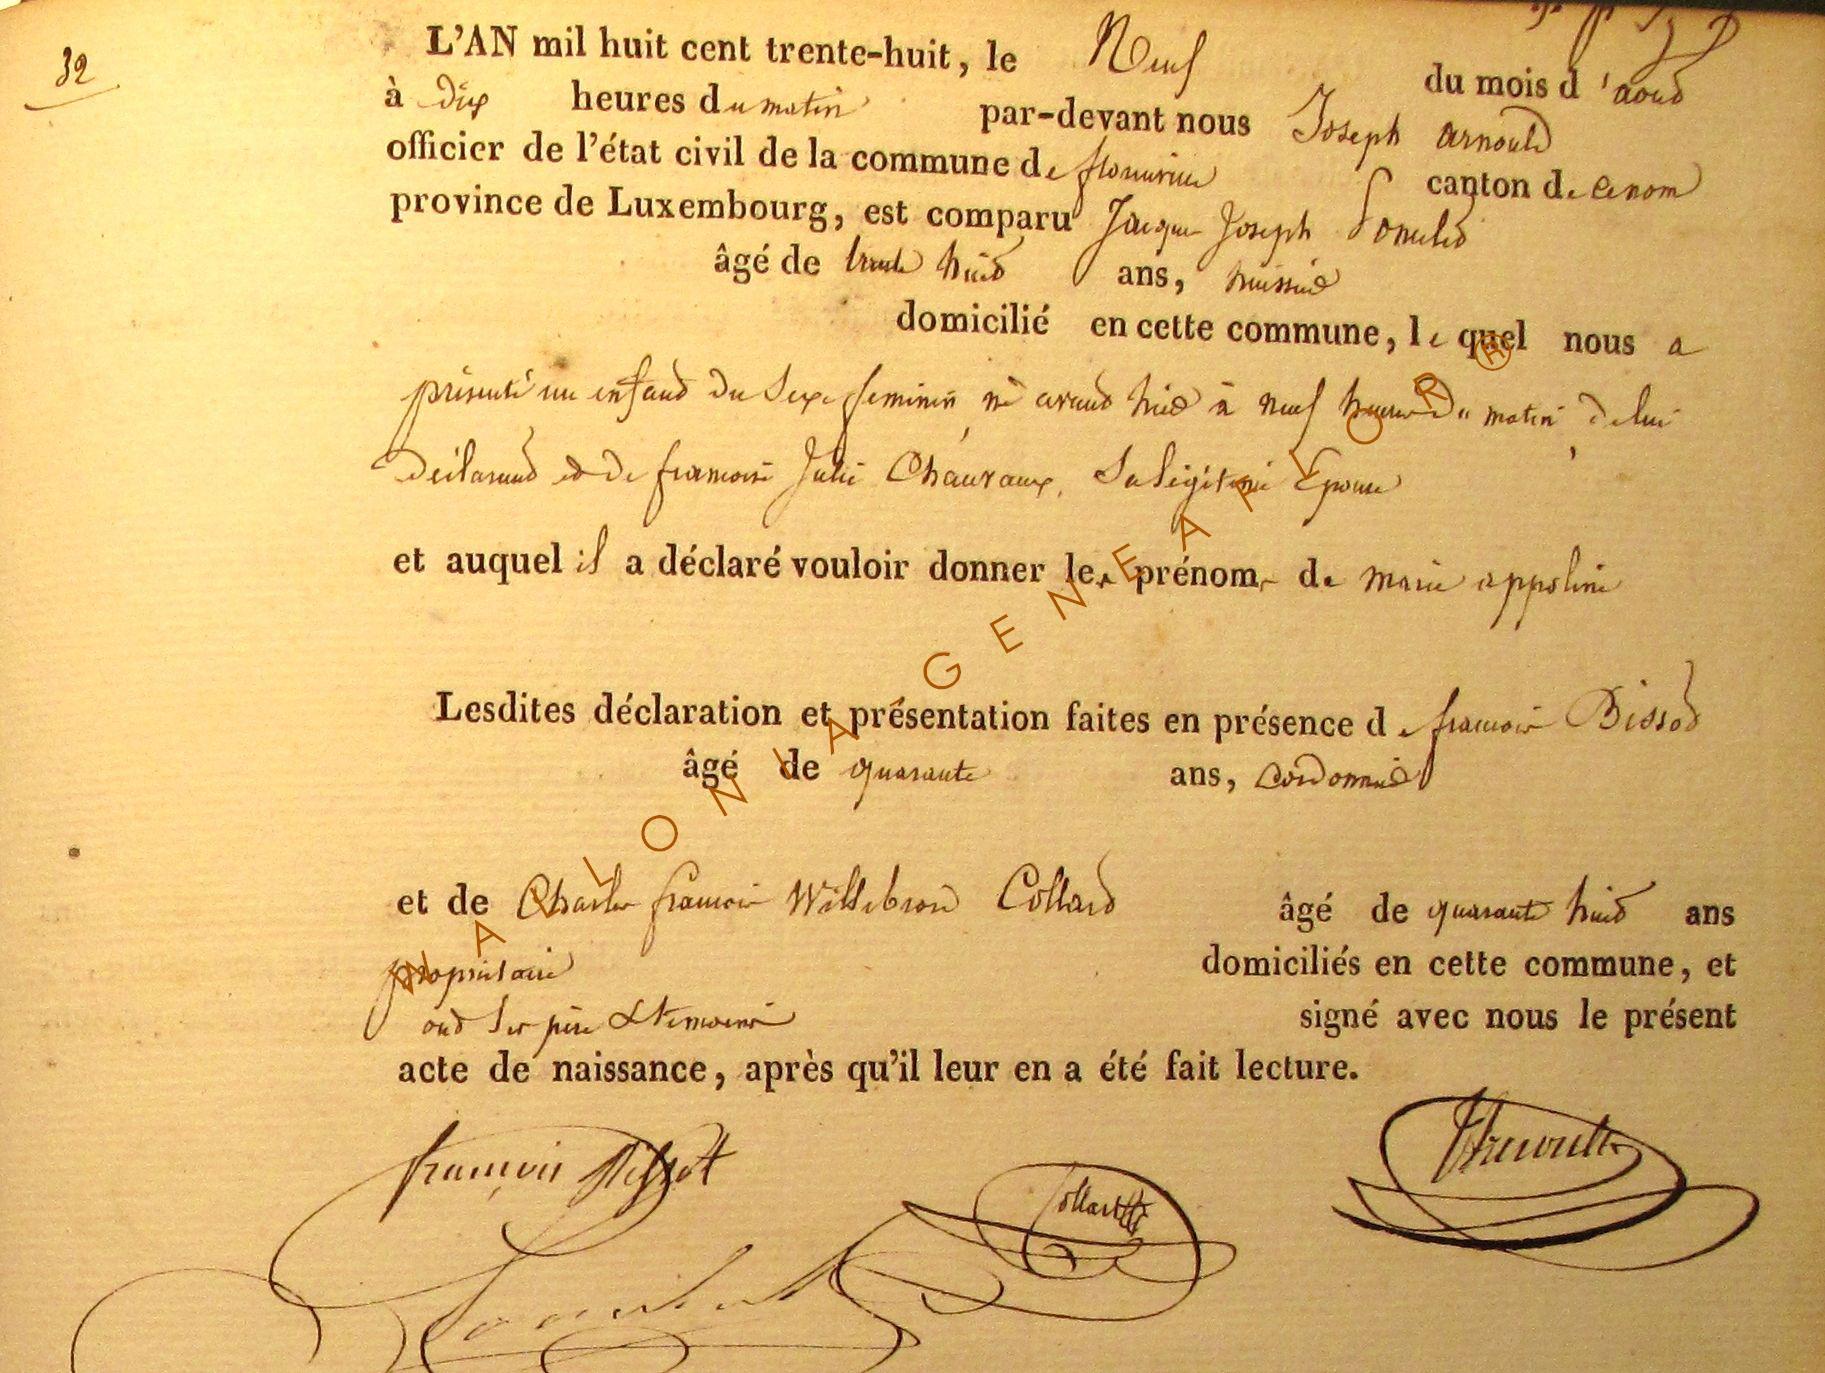 32
L'AN mil huit cent trente-huit, le Neuf du mois d'aout
à dix heures du matin par-devant nous Joseph arnould
officier de l'état civil de la commune de florenville canton de ce nom
province de Luxembourg, est comparu Jacque Joseph
âgé de trente huit ans, huissier
domicilié en cette commune, le quel nous a
présenté un enfant du Sexe feminin né avant hier à neuf heures du matin, de lui
déclarant et de francoise Julie Chauvaux, Sa légitime Epouse
et auquel il a déclaré vouloir donner les prénoms de marie appoline
Lesdites déclaration et présentation faites en présence de francois Bissot
âgé de quarante ans, cordonnier
et de Charles francois Willebrord Collard âgé de quarante huit ans
propriétaire domiciliés en cette commune, et
ont les père & temoins signé avec nous le présent
acte de naissance, après qu'il leur en a été fait lecture.
françois Bissot
Collard
Arnould
WALLONIA GENEAFLOR ®